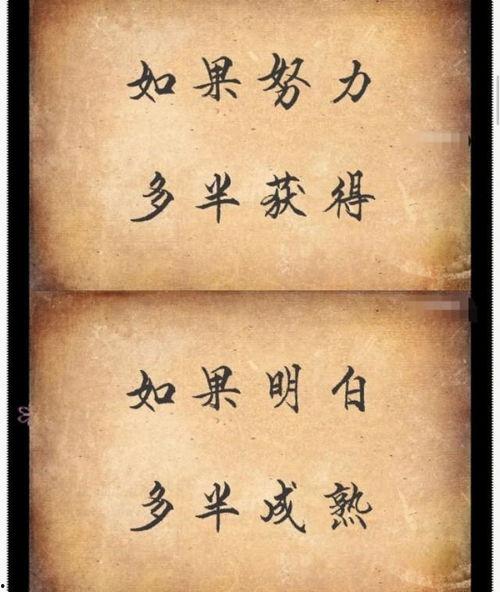 如果努力
多半获得
如果明白
多半成熟